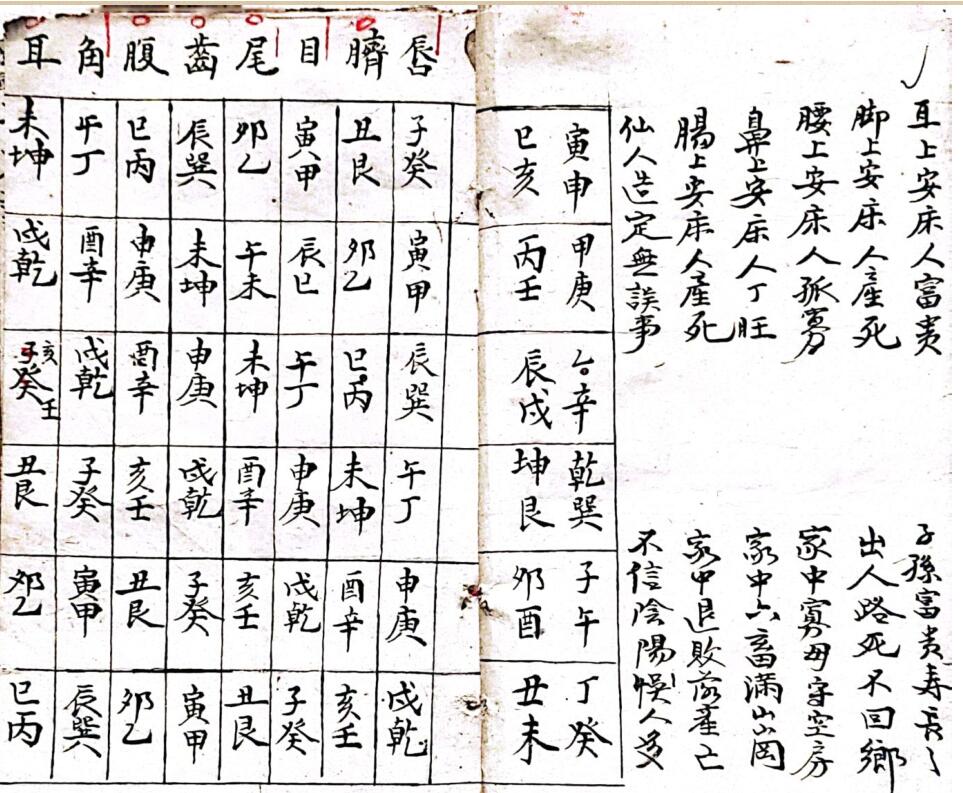 耳上安床人富贵 子孫富贵寿长
脚上安床人產死 出人路死不回鄉
腰上安床人孤寡 家中寡母守空房
鼻上安床人丁旺 家中六畜满山岡
腸上安床人產死 家中退敗產亡
仙人造定無誤事 不信陰陽悞人多
寅申 甲庚 辛 乾巽 子午 丁癸
巳亥 丙壬 辰戌 坤艮 卯酉 丑未
唇 子癸 寅甲 辰巽 午丁 申庚 戌乾
臍 丑艮 卯乙 巳丙 未坤 酉辛 亥壬
目 寅甲 辰巳 午丁 申庚 戌乾 子癸
尾 卯乙 午未 未坤 酉辛 亥壬 丑艮
齒 辰巽 未坤 申庚 戌乾 子癸 寅甲
腹 巳丙 申庚 酉辛 亥壬 丑艮 卯乙
角 午丁 酉辛 戌乾 子癸 寅甲 辰巽
耳 未坤 戌乾 亥子癸壬 丑艮 卯乙 巳丙